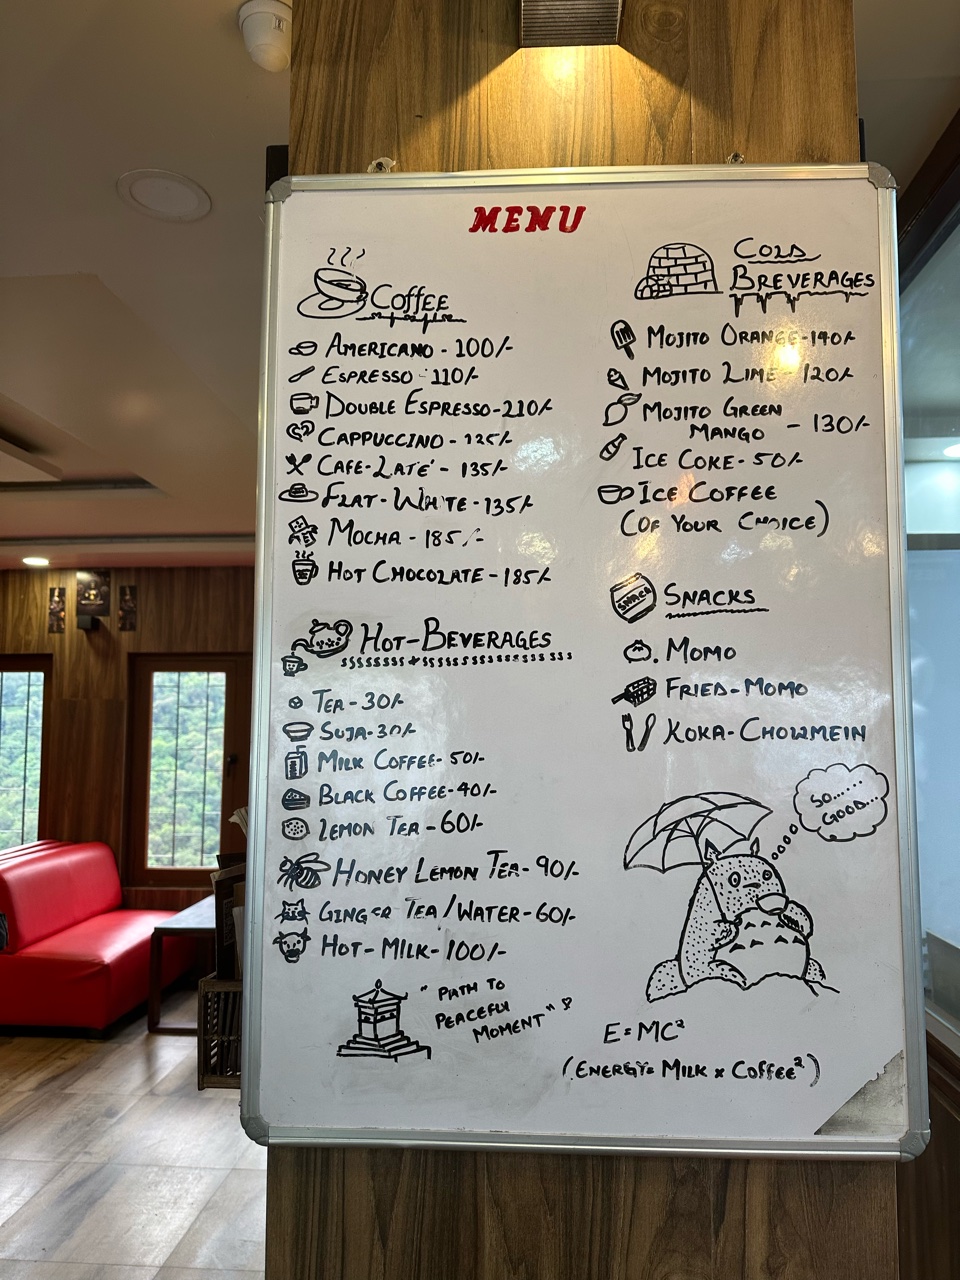 MENU
Coffee
AMERICANO - 100/-
ESPRESSO - 110/-
DOUBLE ESPRESSO - 210/-
CAPPUCCINO - 125/-
CAFE-LATE' - 135/-
FLAT-WHITE - 135/-
MOCHA - 185/-
HOT CHOCOLATE - 185/-
HOT-BEVERAGES
TEA - 30/-
SUJA - 30/-
MILK COFFEE - 50/-
BLACK COFFEE - 40/-
LEMON TEA - 60/-
HONEY LEMON TEA - 90/-
GINGER TEA/WATER - 60/-
HOT-MILK - 100/-
"PATH TO
PEACEFUL
MOMENT"
COLD
BREVERAGES
MOJITO ORANGE - 140/-
MOJITO LIME - 120/-
MOJITO GREEN
MANGO - 130/-
ICE COKE - 50/-
ICE COFFEE
(OF YOUR CHOICE)
SNACK
SNACKS
MOMO
FRIED-MOMO
KOKA-CHOWMEIN
SO......
GOOD...
E=MC²
(ENERGY= MILK x COFFEE²)